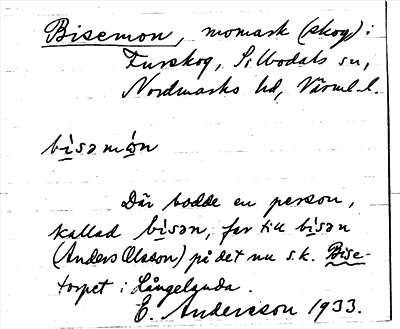 Bisemon, momark (skog) i
Furskog, Silbodals sn,
Nordmarks hd, Värml. l.
bi̠səmó̠n
Där bodde en person,
kallad bi̠sən, far till bi̠sən
(Anders Olsson) på det nu s.k. Bise-
torpet i Långelanda.
E. Andersson 1933.